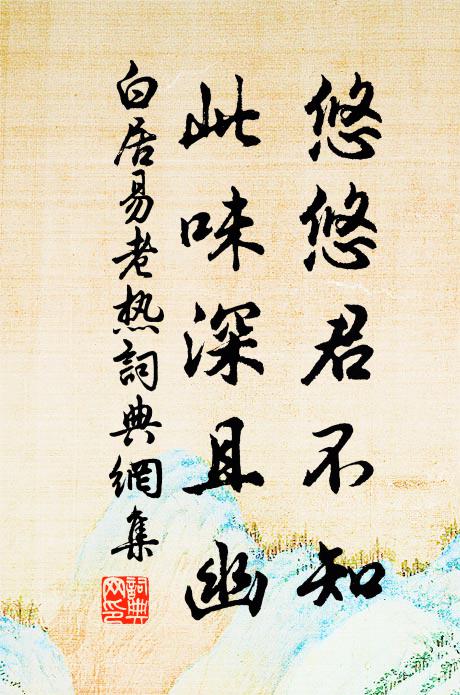 悠悠君不知
此味深且幽
白居易老热詞典網集
詞典